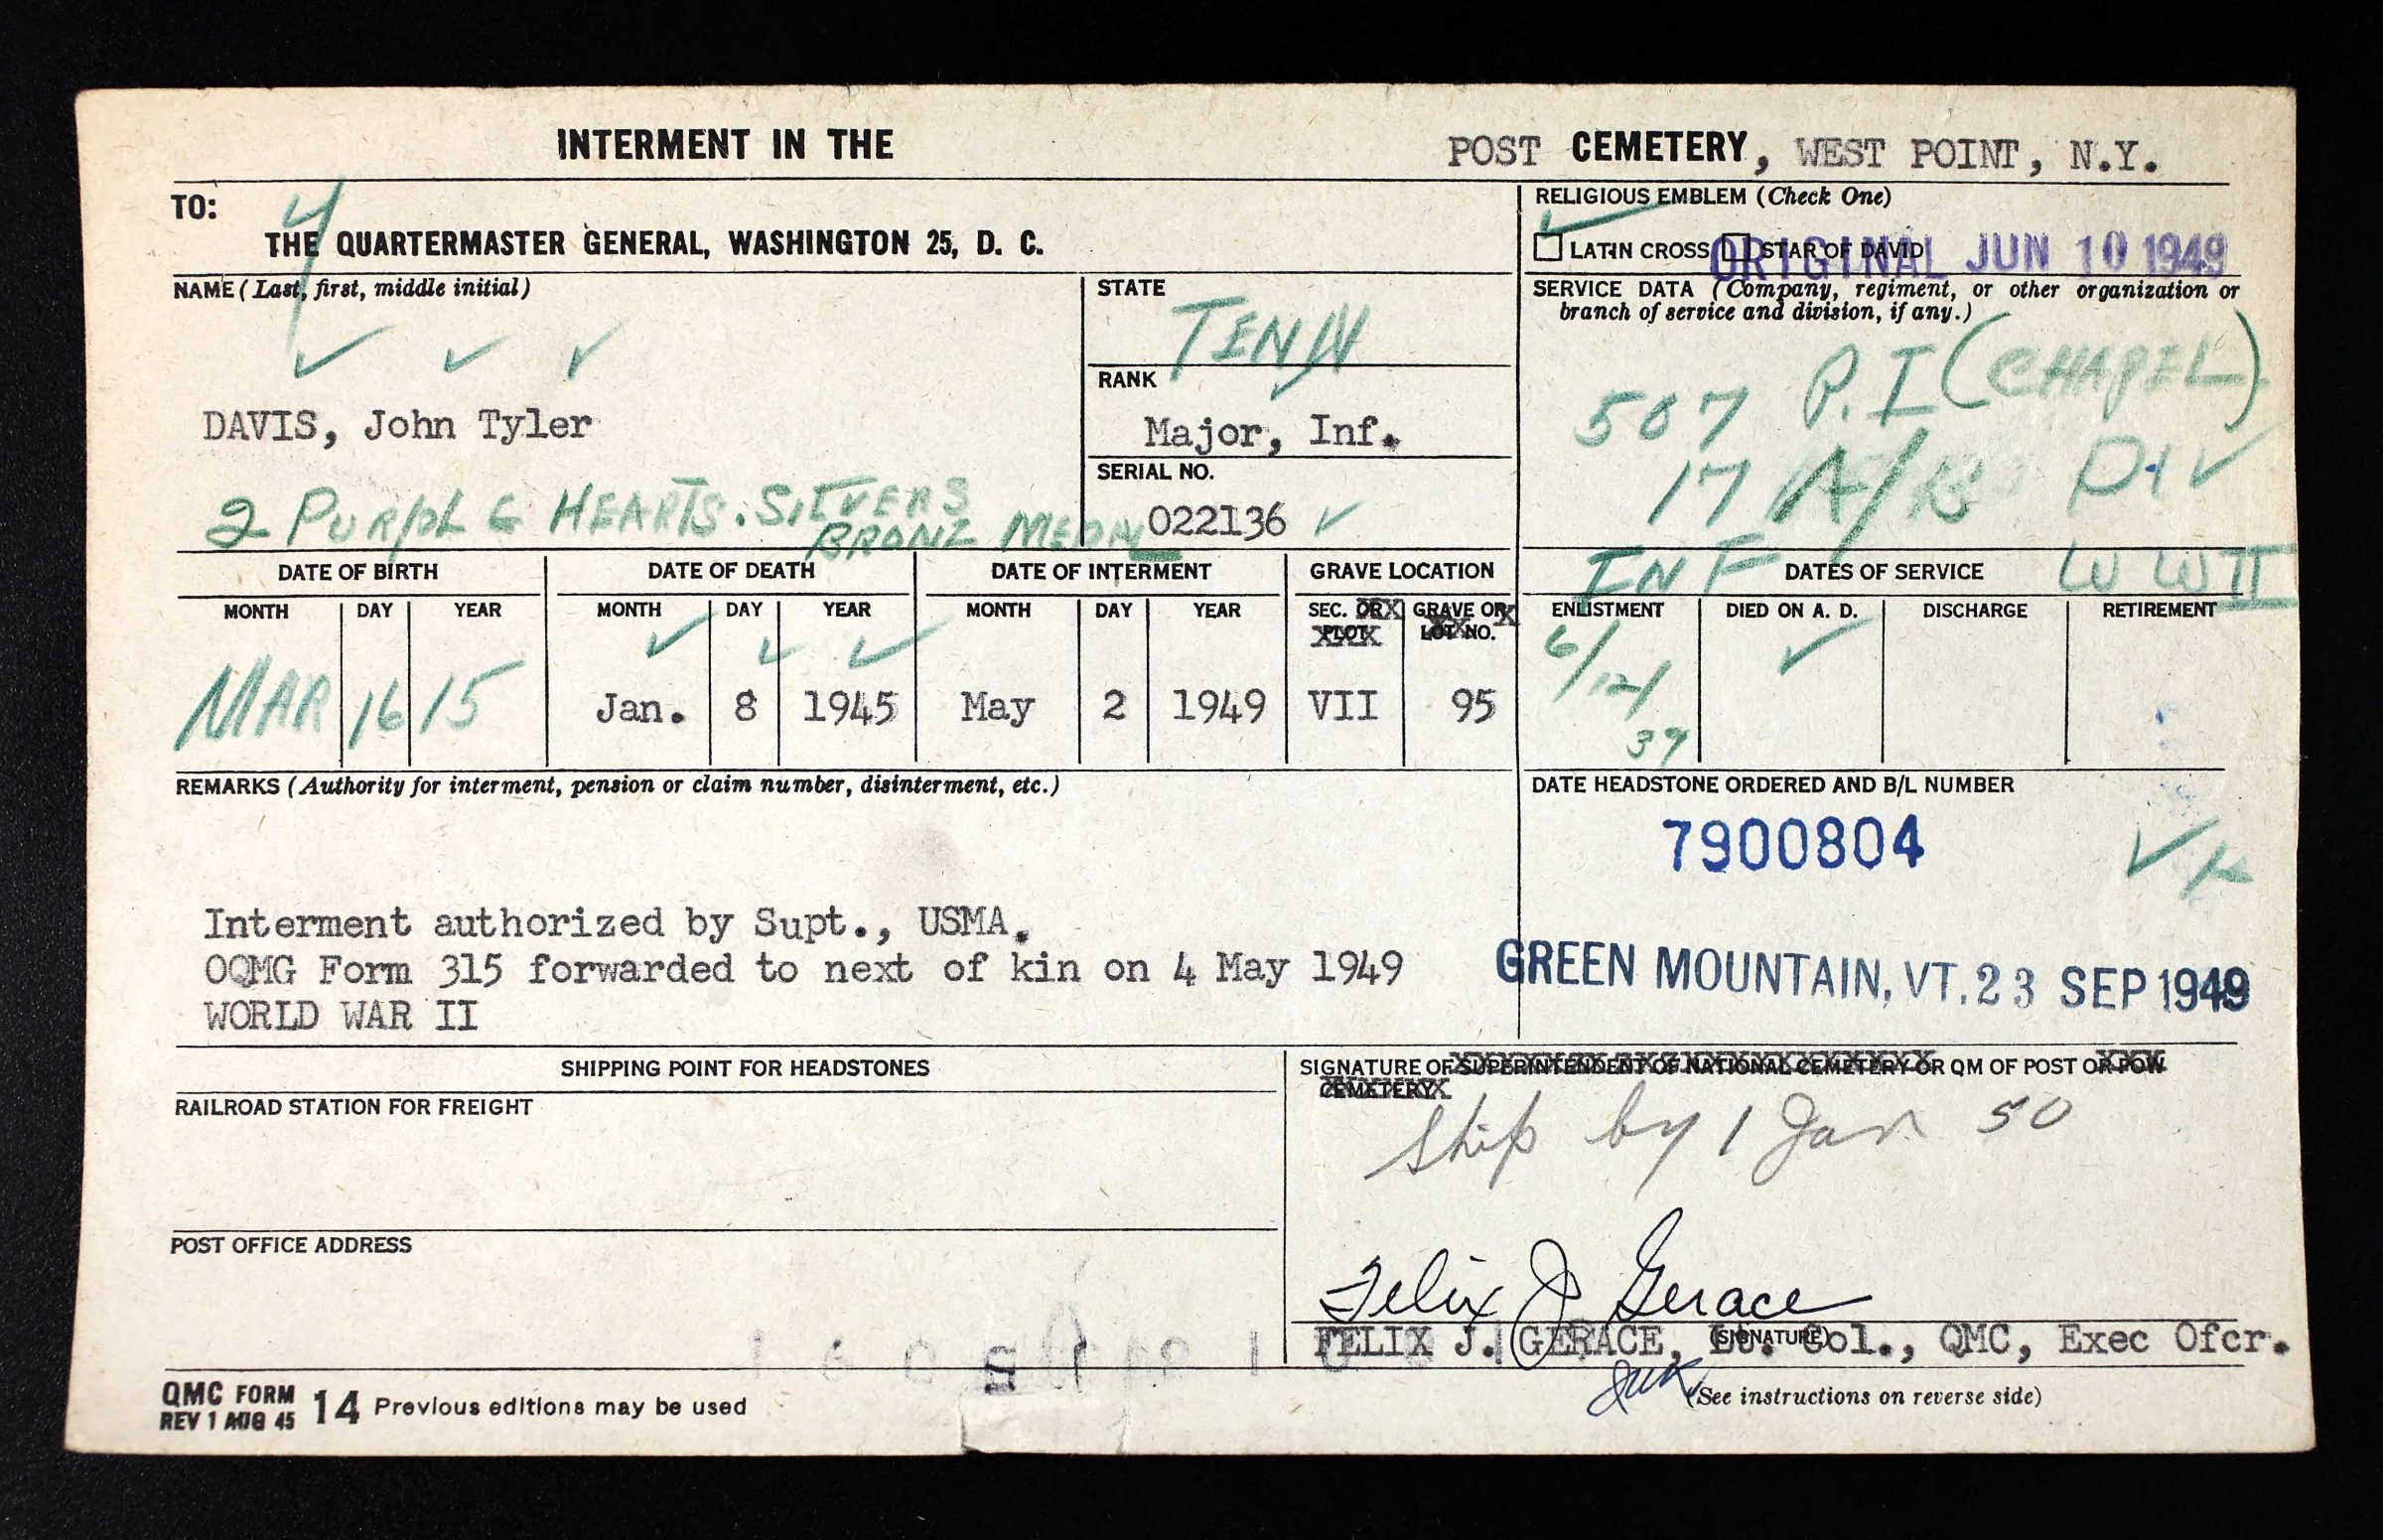 INTERMENT IN THE POST CEMETERY, WEST POINT, N.Y.
TO:
4
THE QUARTERMASTER GENERAL, WASHINGTON 25, D. C.
RELIGIOUS EMBLEM (Check One)
LATIN CROSS STAR OF DAVID
ORIGINAL JUN 10 1949
NAME (Last, first, middle initial)
DAVIS, John Tyler
2 PURPLE HEARTS. SILVERS
BRONZ MEDAL
STATE
TENN
RANK
Major, Inf.
SERIAL NO.
022136
SERVICE DATA (Company, regiment, or other organization or
branch of service and division, if any.)
507 P.I (CHAPEL)
17 A/B DIV
INF WWII
DATE OF BIRTH DATE OF DEATH DATE OF INTERMENT GRAVE LOCATION DATES OF SERVICE
MONTH DAY YEAR MONTH DAY YEAR MONTH DAY YEAR SEC. OR GRAVE OR ENLISTMENT DIED ON A. D. DISCHARGE RETIREMENT
PLOT LOT NO.
MAR 16 15 Jan. 8 1945 May 2 1949 VII 95 6/12/
39
REMARKS (Authority for interment, pension or claim number, disinterment, etc.)
Interment authorized by Supt., USMA.
OQMG Form 315 forwarded to next of kin on 4 May 1949
WORLD WAR II
DATE HEADSTONE ORDERED AND B/L NUMBER
7900804
GREEN MOUNTAIN, VT. 23 SEP 1949
SHIPPING POINT FOR HEADSTONES
RAILROAD STATION FOR FREIGHT
POST OFFICE ADDRESS
SIGNATURE OF SUPERINTENDENT OF NATIONAL CEMETERY OR QM OF POST OR POW
CEMETERY
Ship by 1 Jan 50
Felix J Gerace
FELIX J. GERACE, Lt. Col., QMC, Exec Ofcr.
(SIGNATURE)
(See instructions on reverse side)
QMC FORM 14 Previous editions may be used
REV 1 AUG 45